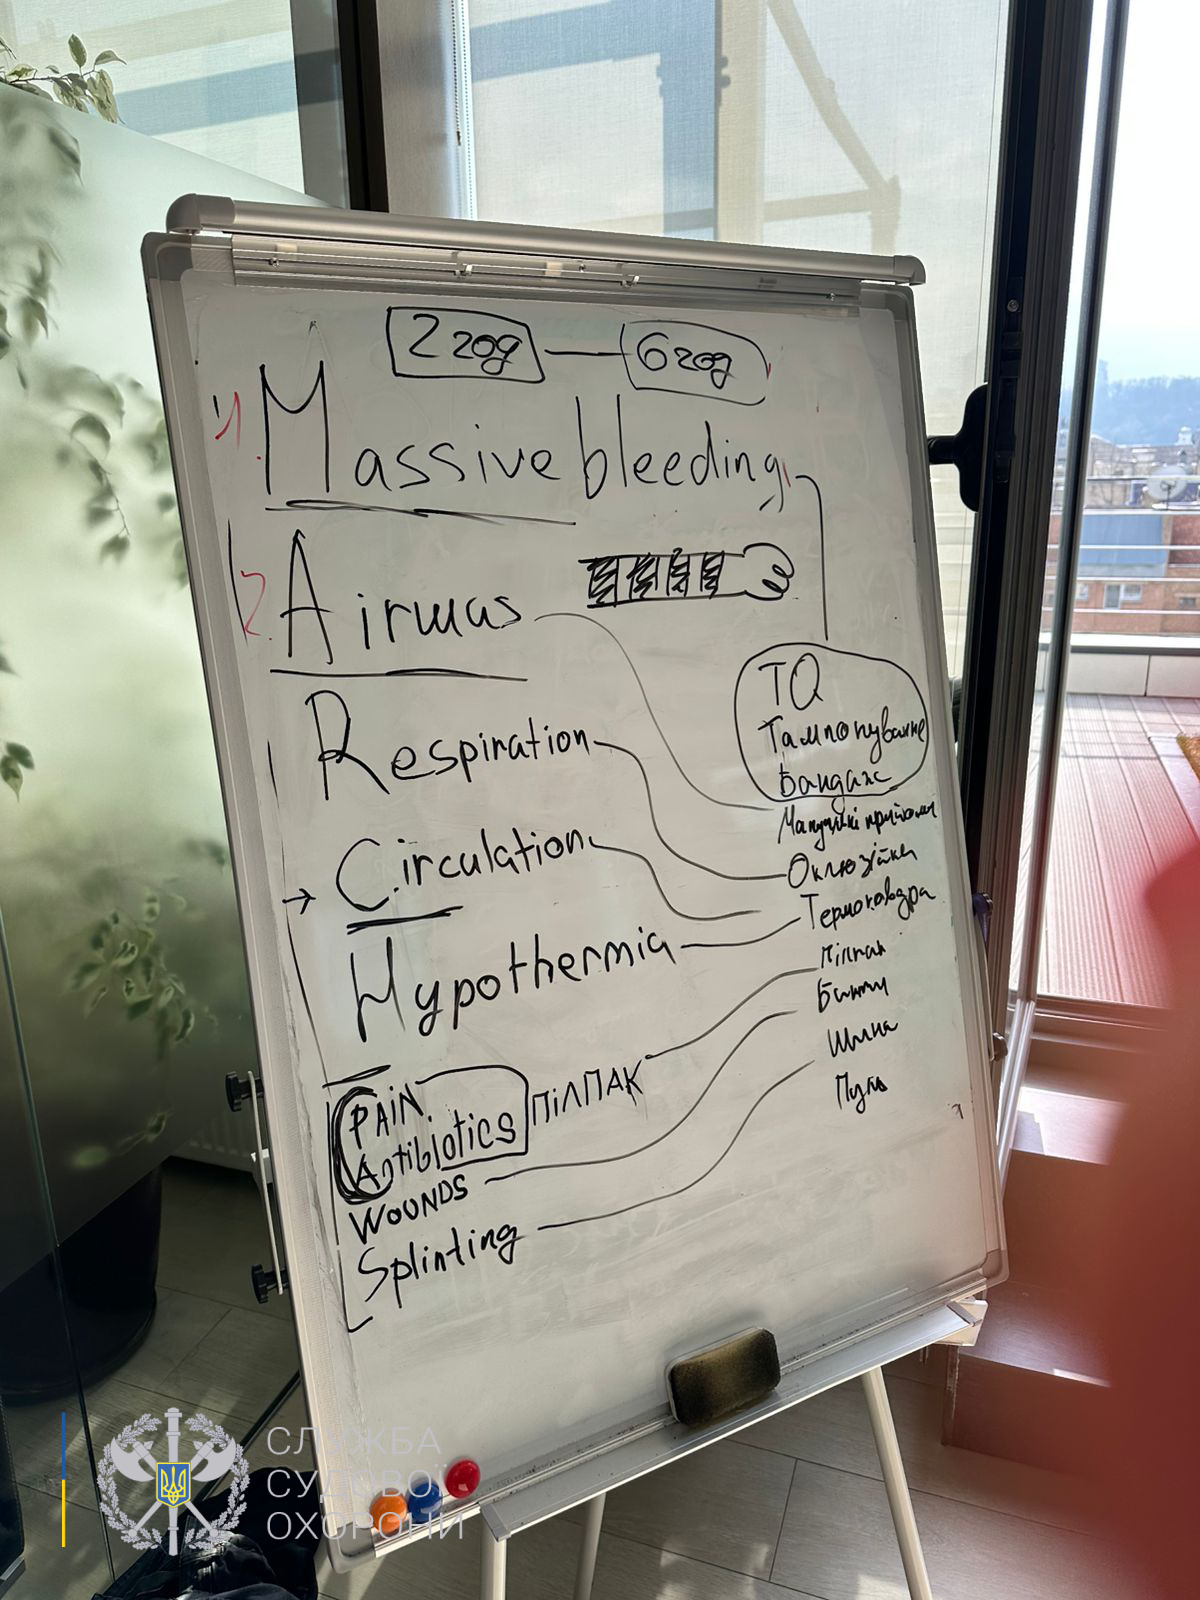 2 год — 6 год
1. Massive bleeding
2. Airwas
Respiration
→ Circulation
Hypothermia
PAIN.
Antibiotics
ПіЛПАК
WOUNDS
Splinting
TQ
Тампонування
Бандаж
Мануальні прийоми
Оклюзійка
Термоковдра
Пілпак
Бинти
Шина
СЛУЖБА
СУДОВОЇ
ОХОРОНИ